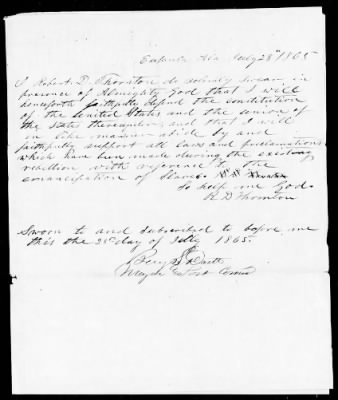 Eufaula Ala July 28" 1865
I Robert D. Thornton do solemly swear in
presence of Almighty God that I will
henceforth faithfully defend the constitution
of the United States and the union of
the states thereunder, and that I will
in like manner abide by and
faithfully support all laws and proclamations
which have been made during the existing
rebellion with reference to the
emancipation of slaves.
So help me God.
R D Thornton
Sworn to and subscribed to before me
this the 28" day of July 1865.